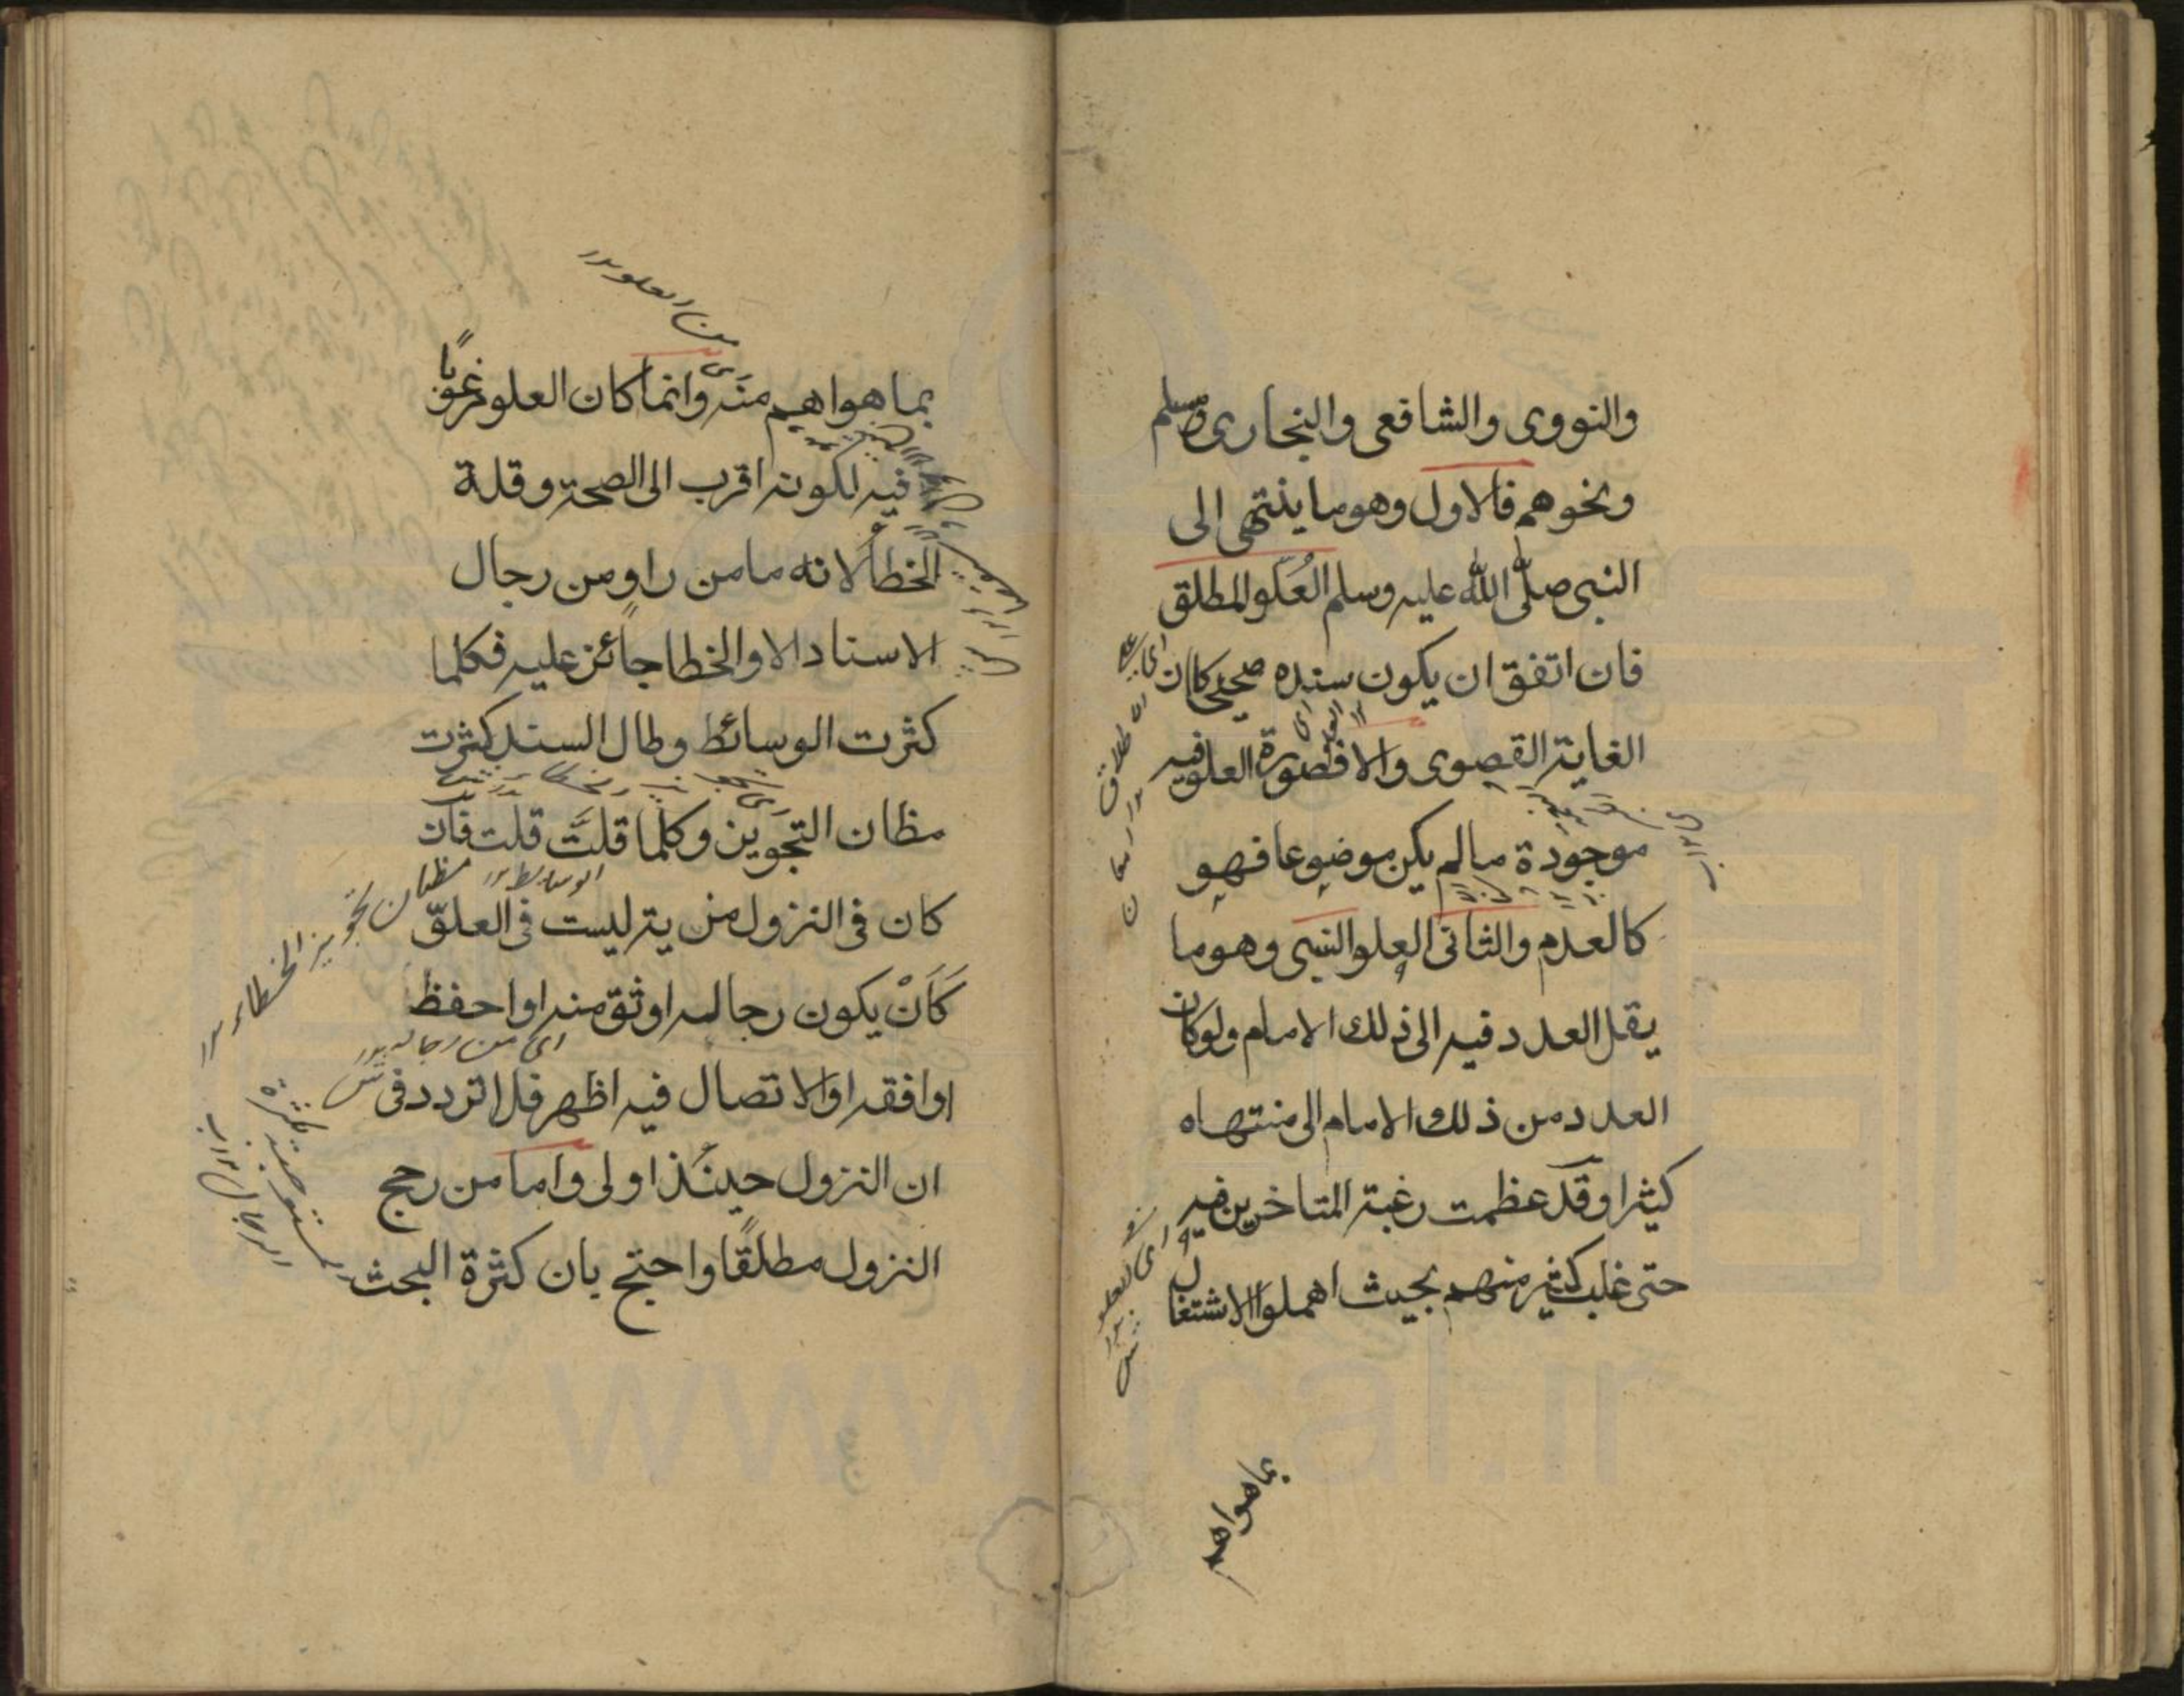 والنووى والشافعى والبخارى ومسلم
ونحوهم فالاول وهو ما ينتهى الى
النبى صلى الله عليه وسلم العلو المطلق
فان اتفق ان يكون سنده صحيحا كان
الغاية القصوى والا فصورة العلو فيه
موجودة ما لم يكن موضوعا فهو
كالعدم والثانى العلو النسبى وهو ما
يقل العدد فيه الى ذلك الامام ولو كان
العدد من ذلك الامام الى منتهاه
كثيرا وقد عظمت رغبة المتاخرين فيه
حتى غلب كثير منهم بحيث اهملوا الاشتغال
اى العلو
من العلو
بما هو اهم منه وانما كان العلو مرغوبًا
فيه لكونه اقرب الى الصحة وقلة
الخطأ لانه ما من راو من رجال
الاسناد الا والخطا جائز عليه فكلما
كثرت الوسائط وطال السند كثرت
مظان التجويز وكلما قلت قلت فان
الوسائط
كان فى النزول مزية ليست فى العلو
مظان تجويز الخطاء
كَاَنْ يكون رجاله اوثق منه او احفظ
اى من رجاله
او افقه او الاتصال فيه اظهر فلا تردد فى
ان النزول حينئذ اولى واما من رجح
النزول مطلقًا واحتج بان كثرة البحث
www.ical.ir